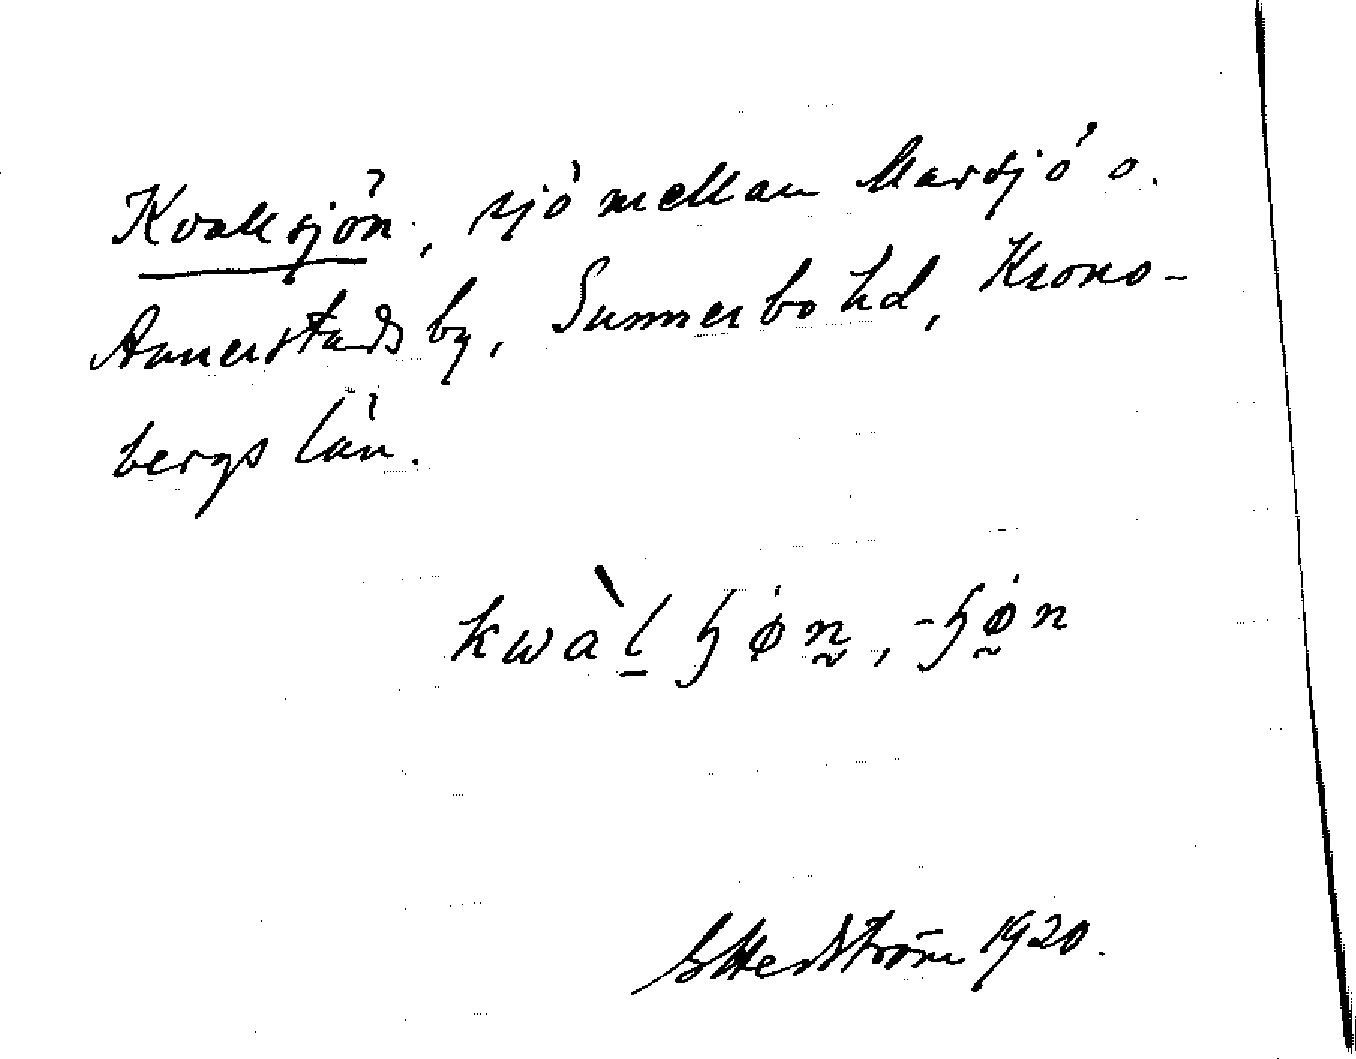 Kvallsjön, sjö mellan Marsjö o.
Annerstads by, Sunnerbo hd, Krono-
bergs län.
kwàl ɧøn, -ɧøn
G Hedström 1920.